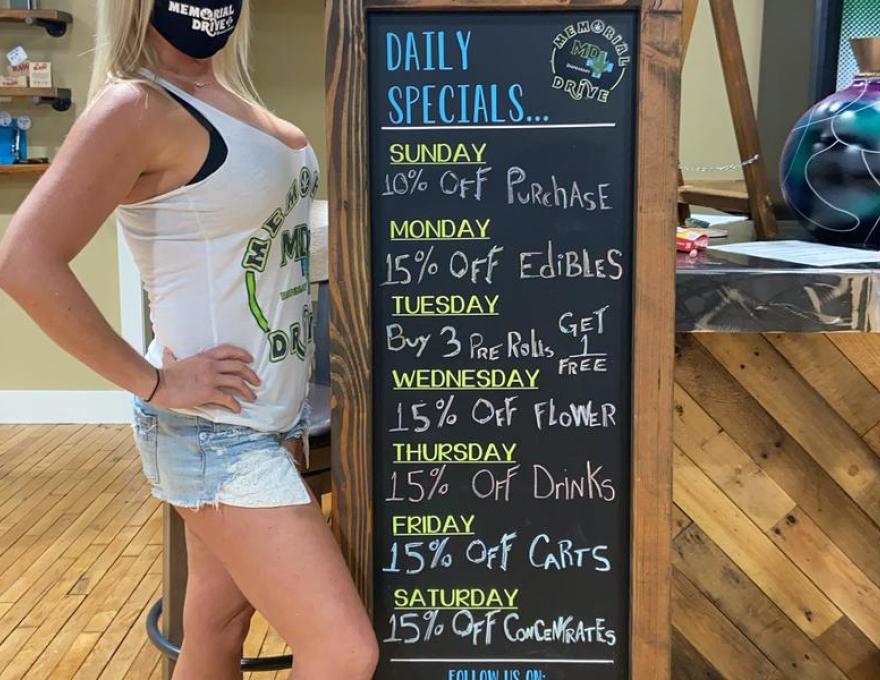 MEMORIAL
DRIVE
DAILY
SPECIALS...
MEMORIAL
MDL
DRIVE
SUNDAY
10% OFF PURCHASE
MONDAY
15% OFF EDiBLES
TUESDAY
Buy 3 PRE Rolls GET 1 FREE
WEDNESDAY
15% OFF FLOWER
THURSDAY
15% OFF DrinKs
FRIDAY
15% OFF CARTS
SATURDAY
15% OFF CONCENtRATEs
FOLLOW US ON:
RAW